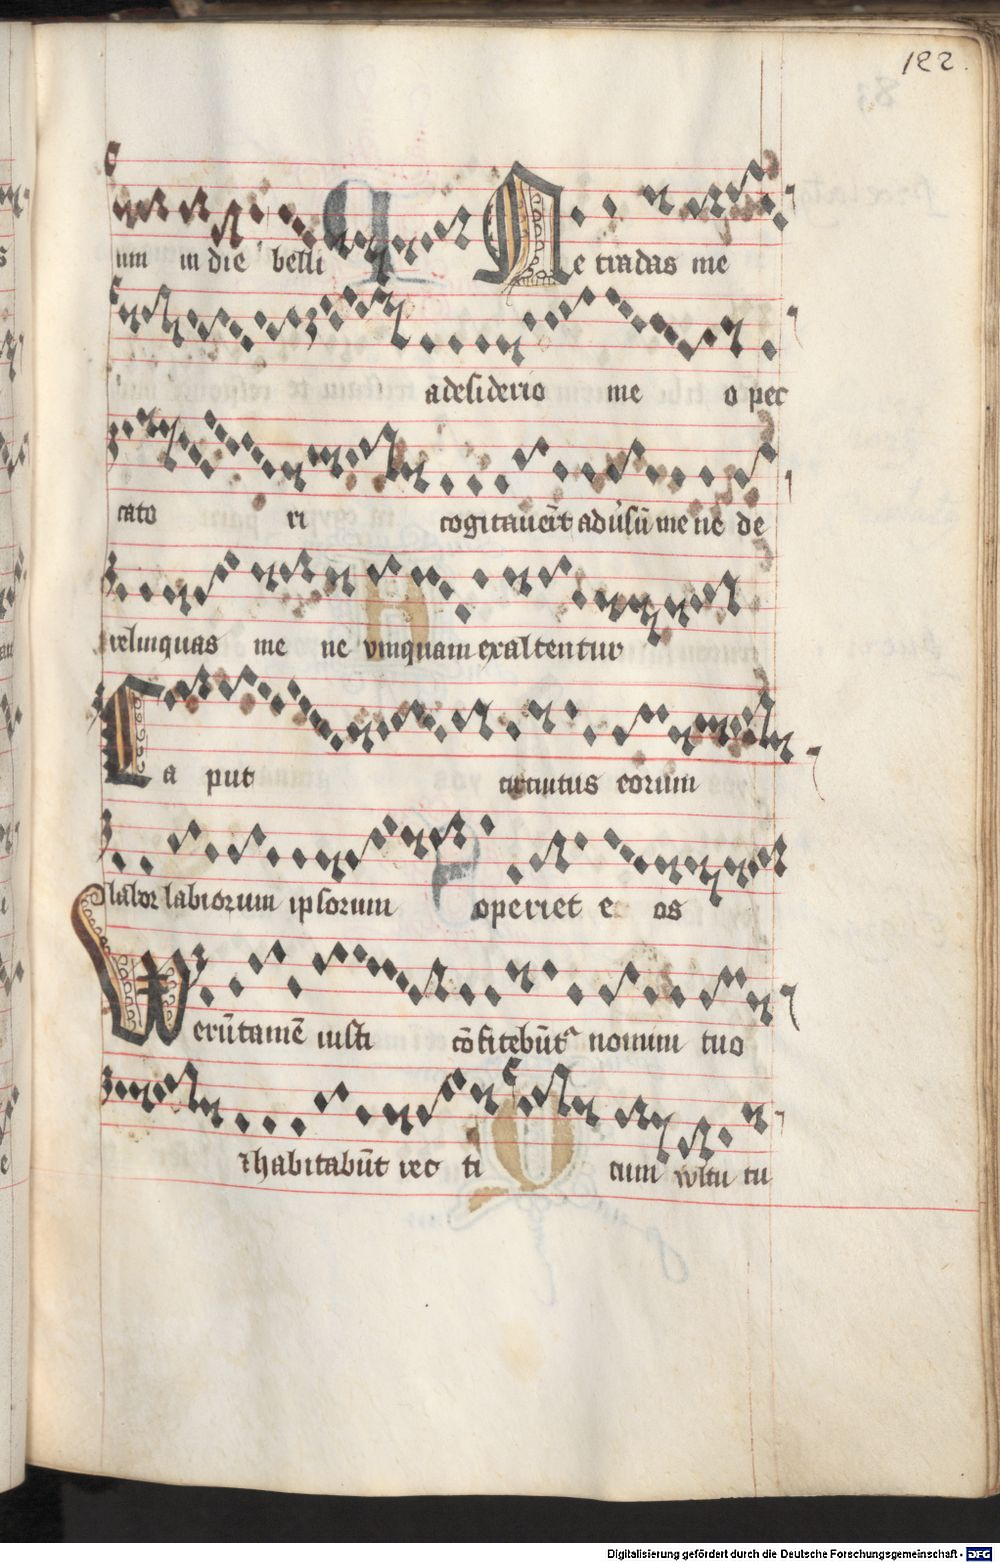 122.
um in die belli Ne tradas me
a desiderio me o pec
cato ri cogitauer̄t adūsū me ne de
relinquas me ne vmquam exaltentur
Ca put circuitus eorum
labor labiorum ipsorum operiet e os
Uerūtamē iusti cōfitebūt nomini tuo
et habitabūt rec ti cum vultu tu
Digitalisierung gefördert durch die Deutsche Forschungsgemeinschaft - DFG